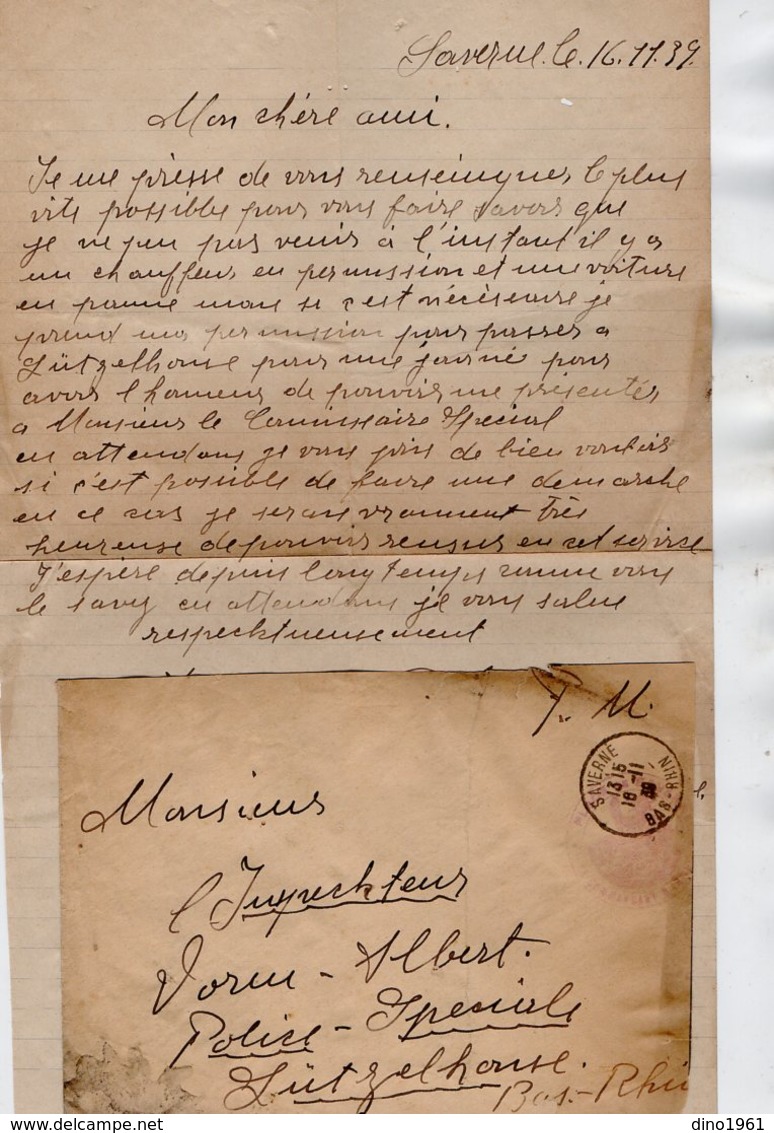 Saverne. le. 16.11.39.
Mon chére ami.
Je me prèsse de vous renseingner le plus
vite possible pour vous faire savoir que
je ne peu pas venir à l'instant il y a
un chauffeur en permission et une voiture
en panne mais si c'est nécèssaire je
prend ma permission pour passer a
Lützelhouse pour une journé pour
avoir l'honneur de pouvoir me présenter
a Monsieur le Commissaire Special
en attendans je vous pris de bien vouloir
si c'est possible de faire une demarche
en ce cas je serais vraiment très
heureuse de pouvoir reussir en cet service
J'espère depuis longtemps comme vous
le savez en attendans je vous salue
respecktueusement
F. M.
SAVERNE
1315
16-11
39
BAS-RHIN
Monsieur
l'Inspeckteur
Vorm - Albert.
Police - Speciale
Lützelhouse.
Bas-Rhin
dino1961